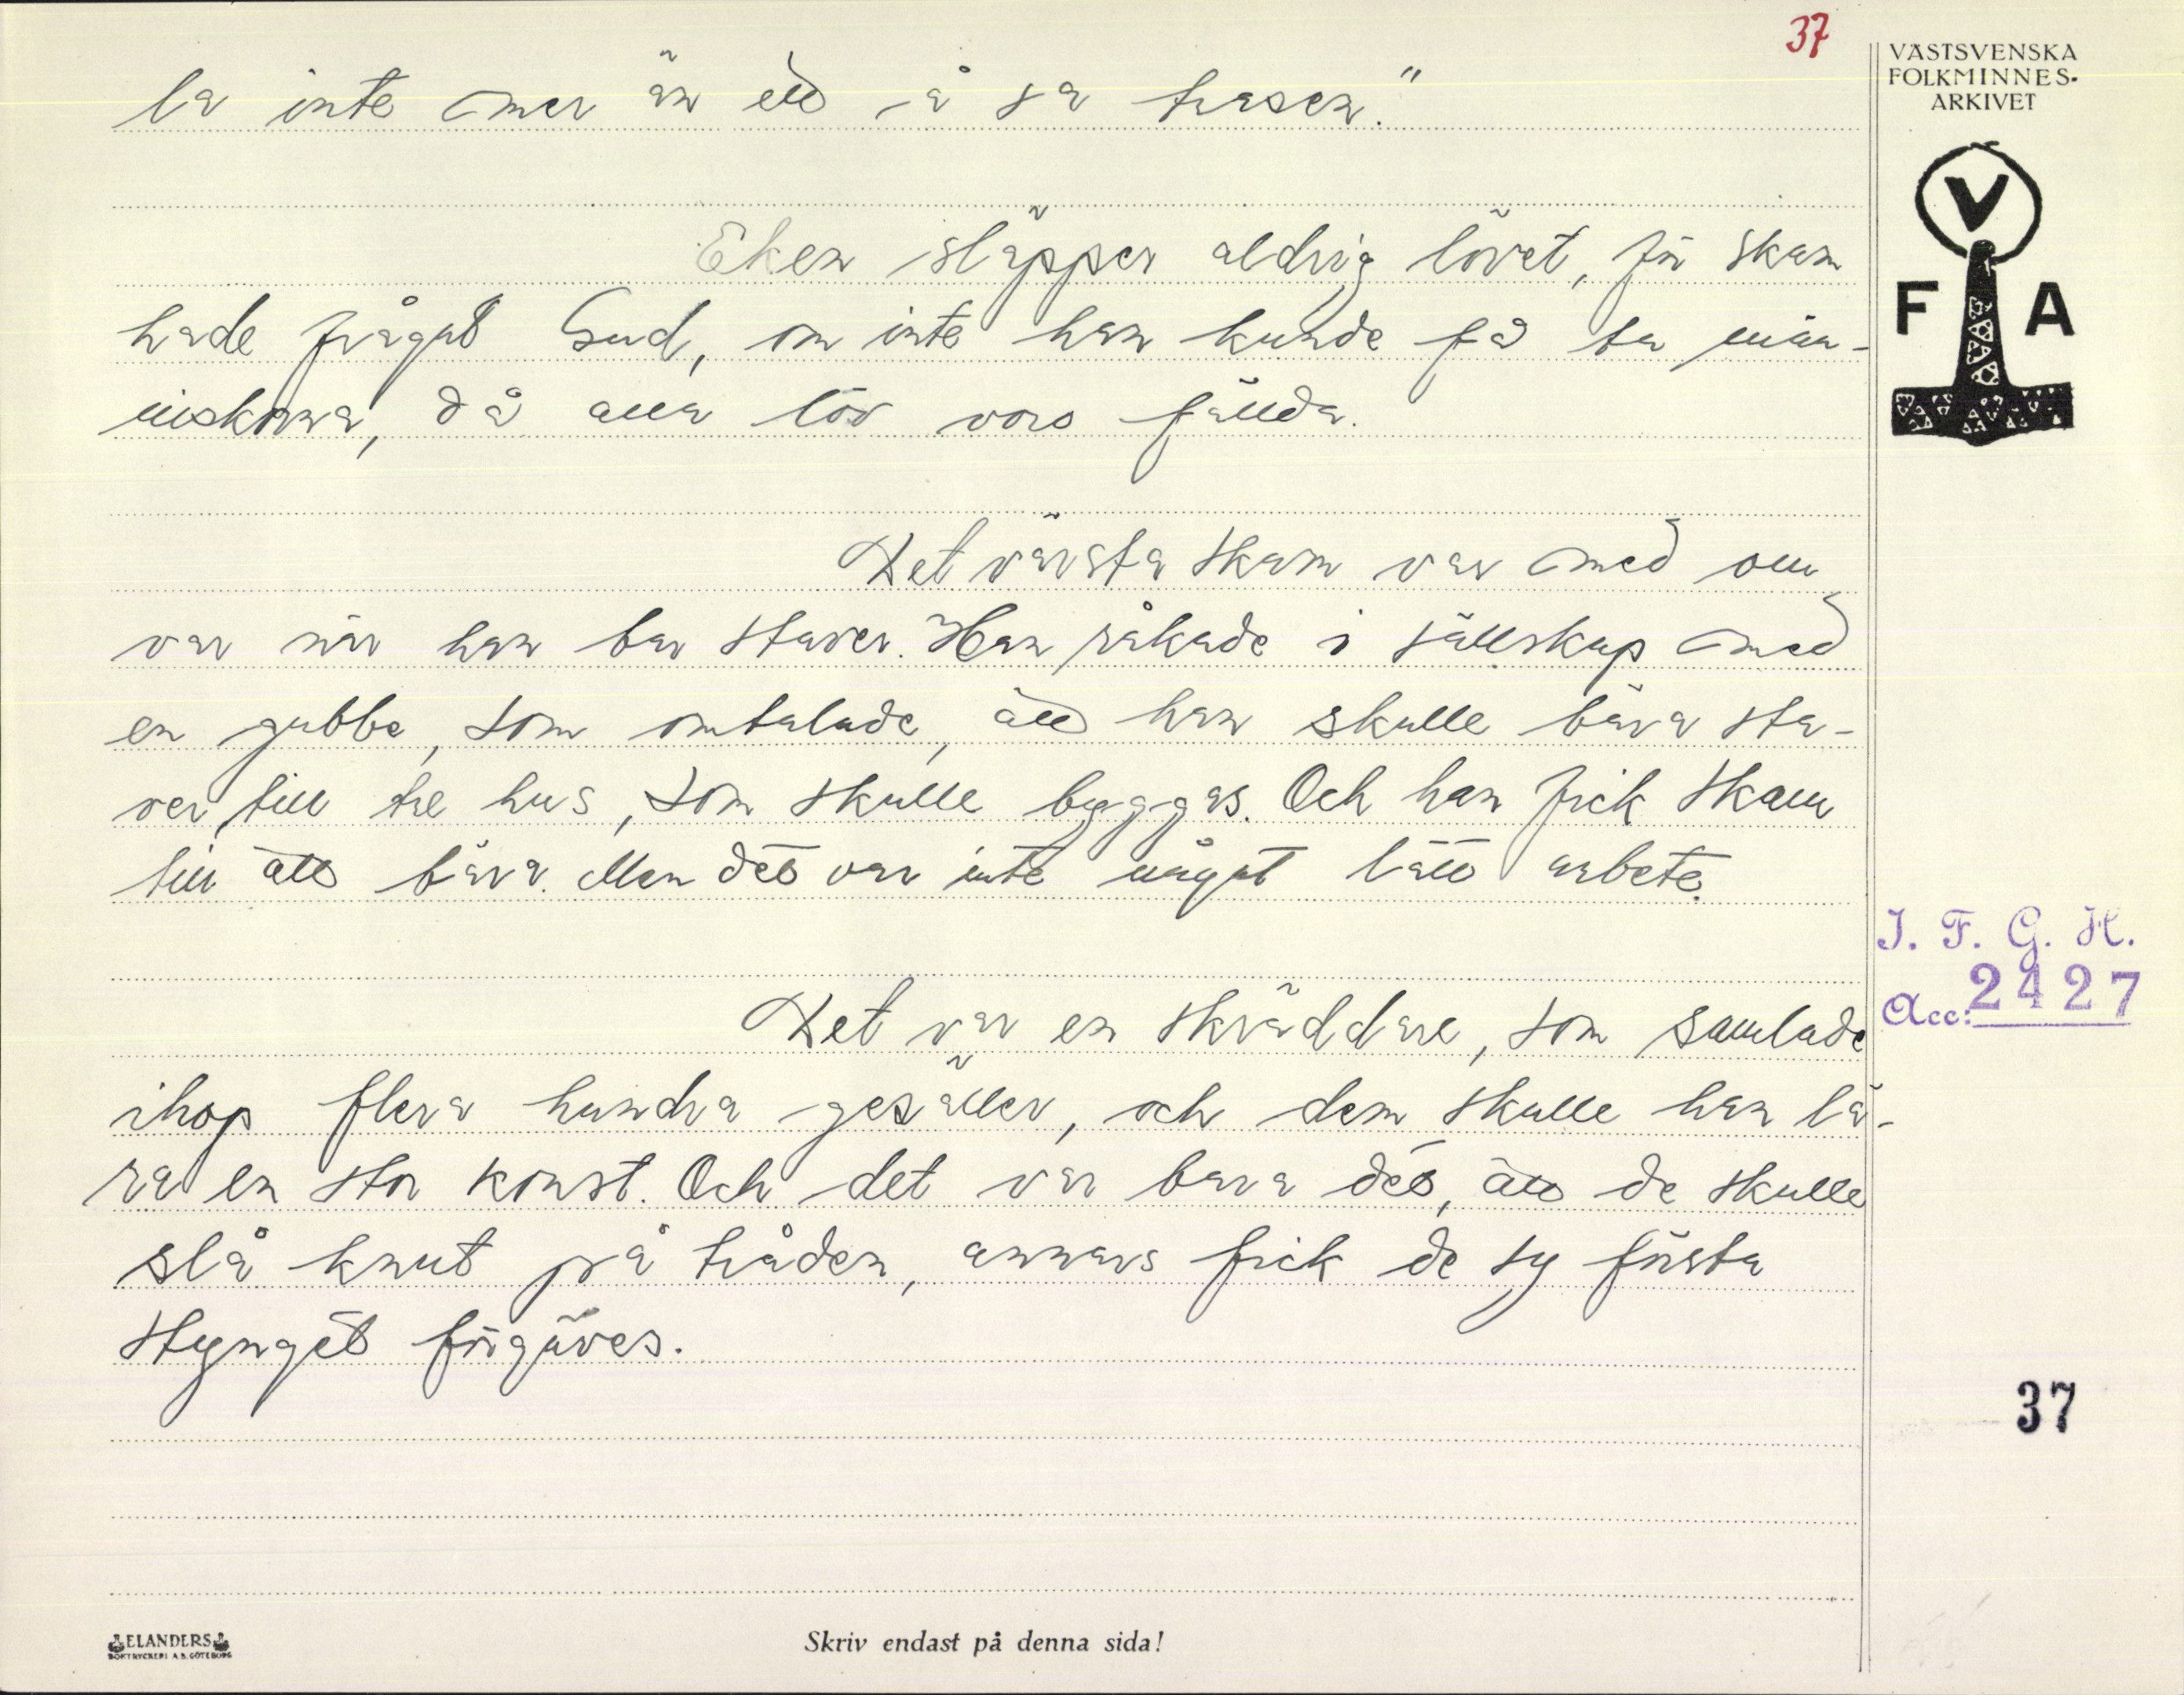 37
VÄSTSVENSKA
FOLKMINNES-
ARKIVET
V
F A
la inte mer än ett å sa hasen."
Eken släpper aldrig lövet, för skam
hade frågat Gud, om inte han kunde få ta män-
niskorna, då alla löv voro fällda.
Det värsta skam var med om
var när han bar staver. Han råkade i sällskap med
en gubbe, som omtalade, att han skulle bära sta-
ver till tre hus, som skulle byggas. Och han fick skam
till att bära. Men det var inte något lätt arbete.
I. F. G. H.
Acc: 2427
Det var en skräddare, som samlade
ihop flera hundra gesäller, och dem skulle han lä-
ra en stor konst. Och det var bara det, att de skulle
slå knut på tråden, annars fick de sy första
stynget förgäves.
37
ELANDERS
BOKTRYCKERI A.B. GÖTEBORG
Skriv endast på denna sida!